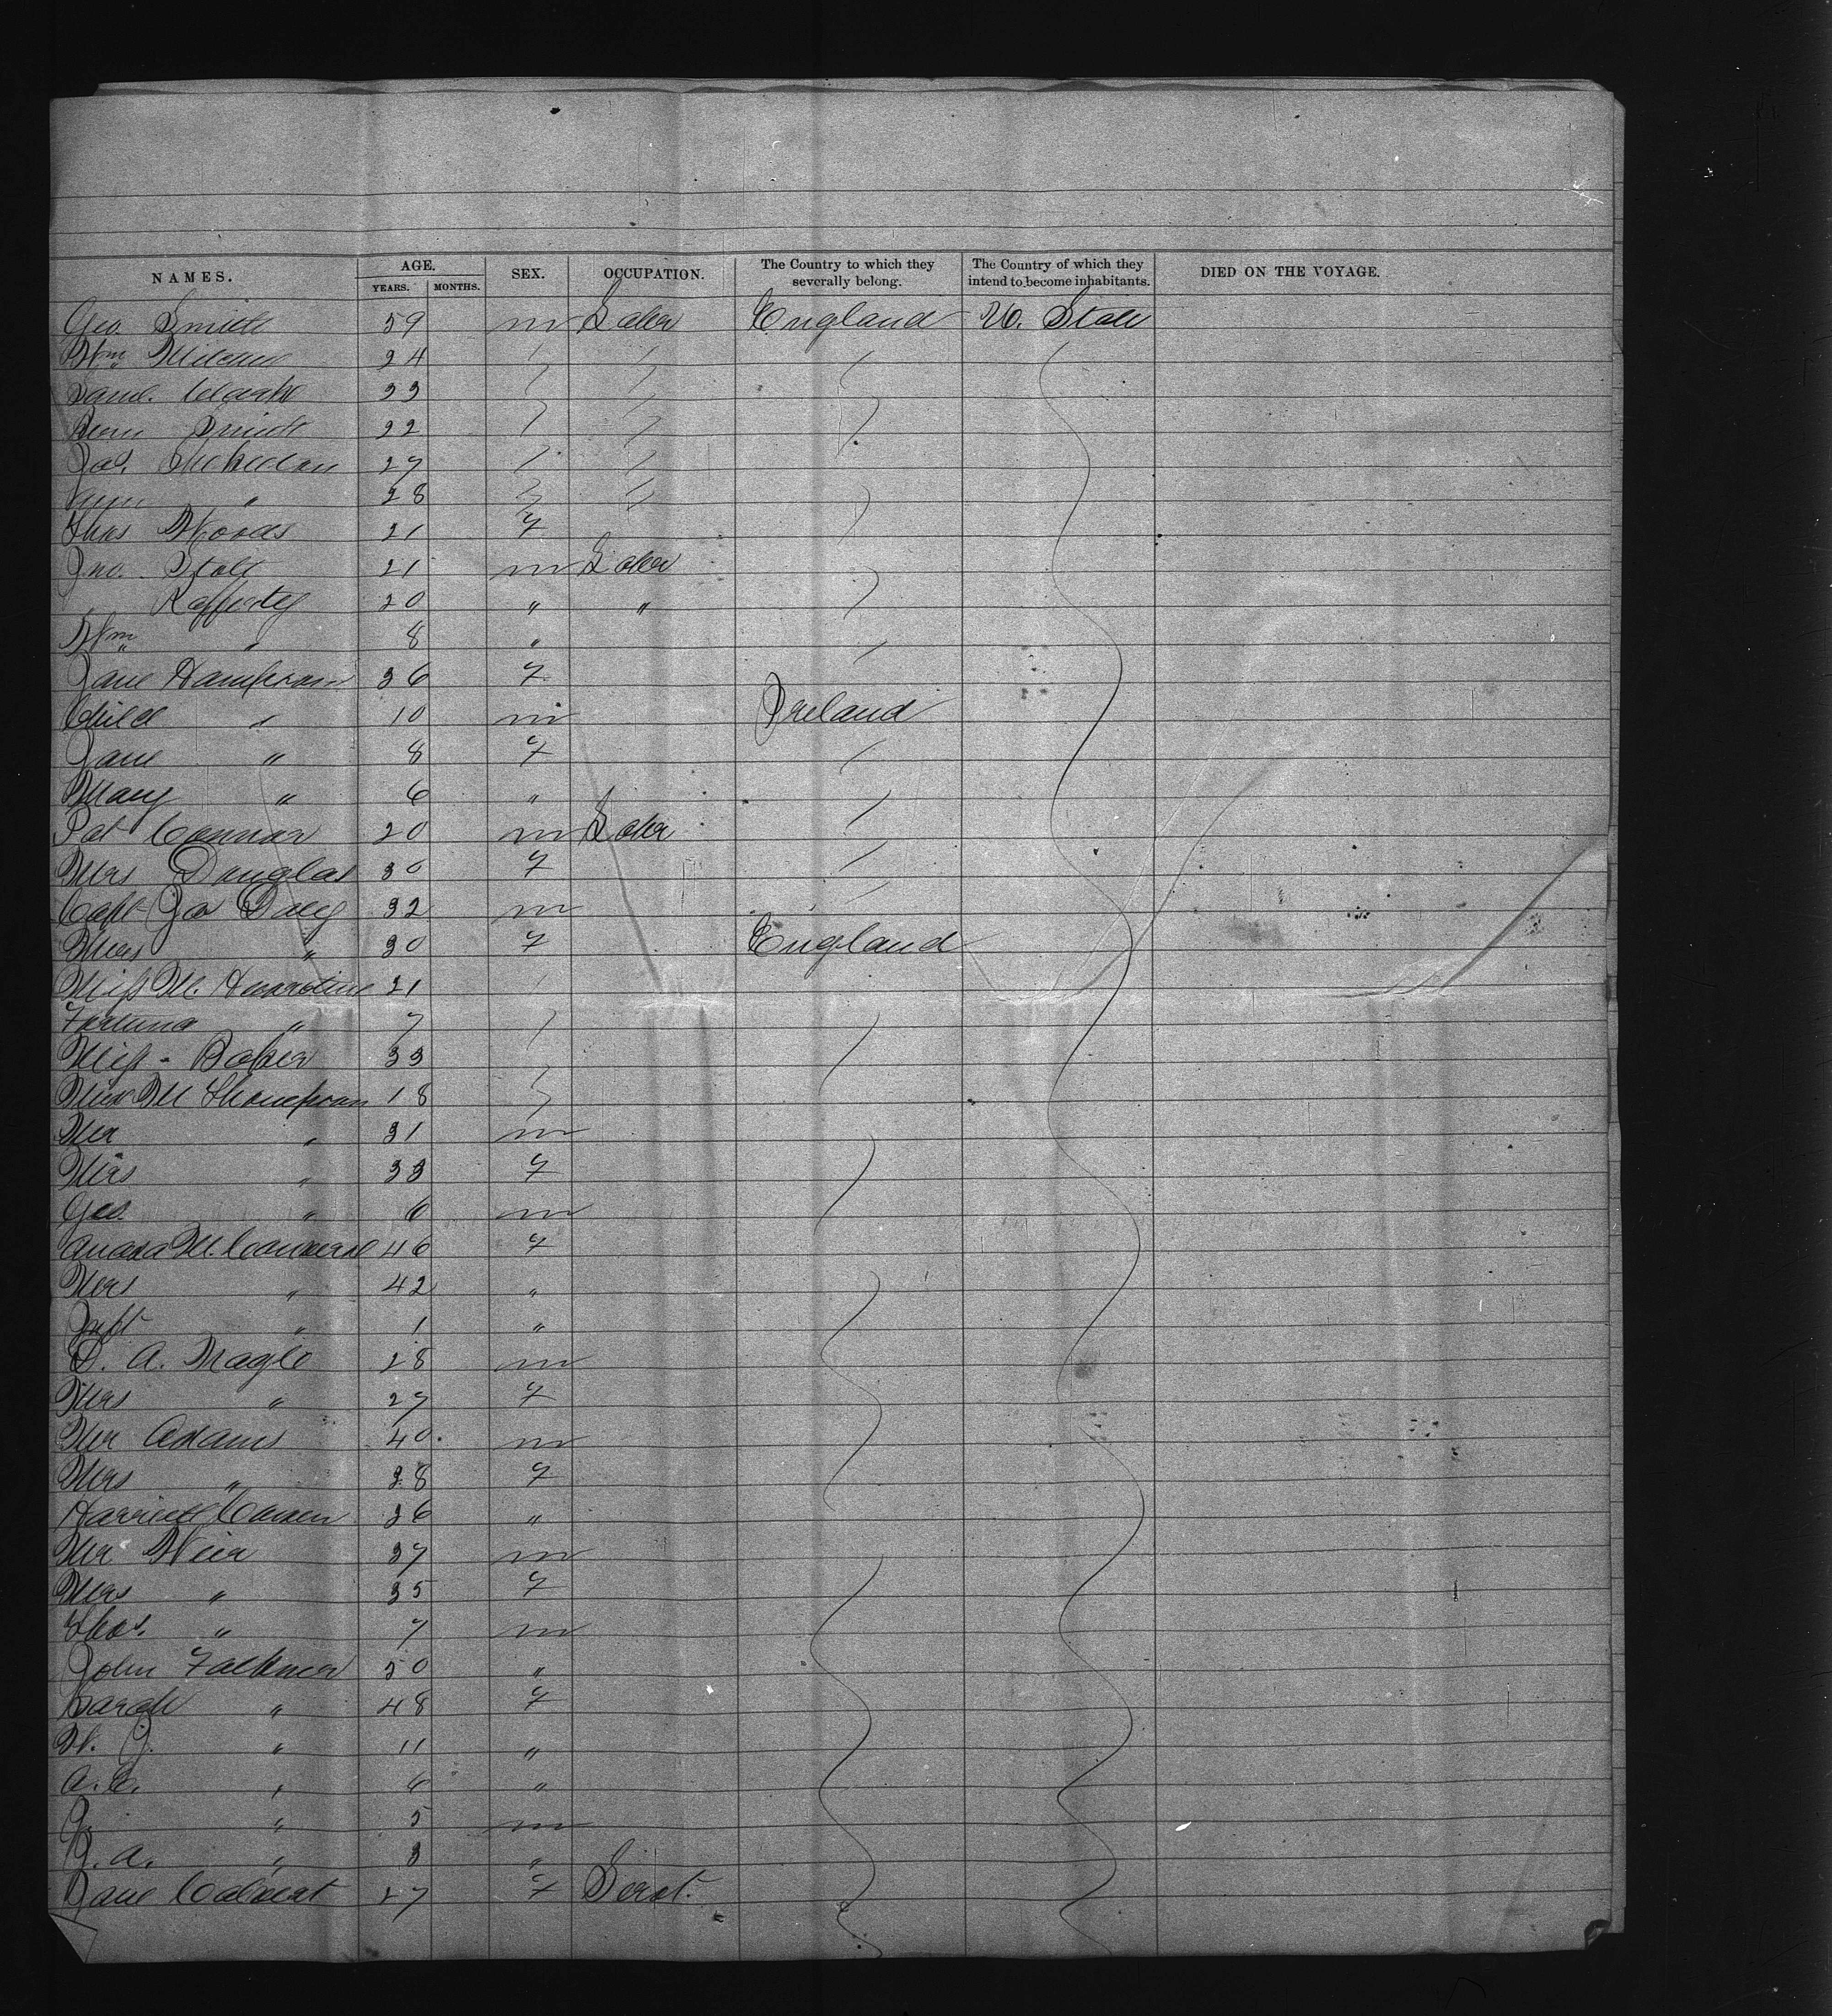 NAMES. AGE. SEX. OCCUPATION. The Country to which they severally belong. The Country of which they intend to become inhabitants. DIED ON THE VOYAGE.
YEARS. MONTHS.
Geo Smith 59 m Labr England U. State
Wm 24
Saml. Clarke 33
Smith 22
Jas. 27
Ann " 28
Thos Woods 21 f
Jno. 21 m Labr
Rafferty 20 " "
Wm " 8 "
Jane Hampson 36 f
Child " 10 m Ireland
Jane " 8 f
Mary " 6 "
Pat Connor 20 m Labr
Mrs Douglas 30 f
Capt Jas Daly 32 m
Mrs " 30 f England
Miss M. 21
" 7
Miss - Baker 33
M Thompson 18
Mr " 31 m
Mrs " 33 f
Geo. " 6 m
M. 46 f
Mrs " 42 "
Inft " 1 "
A. Nagle 28 m
Mrs " 27 f
Mr Adams 40 m
Mrs " 38 f
Harriett 36 "
Mr Weir 37 m
Mrs " 35 f
Thos. " 7 m
John Falkner 50 "
Sarah " 48 f
W. J. " 11 "
A. E. " 6 "
" 5 m
A. " 3 "
Jane Calvert 27 f Servt.